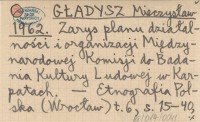 GŁADYSZ Mieczysław
1962. Zarys planu działal-
ności i organizacji Między-
narodowej Komisji do Bada-
nia Kultury Ludowej w Kar-
patach. — Etnografia Pol-
ska (Wrocław) t. 6 s. 15-40,